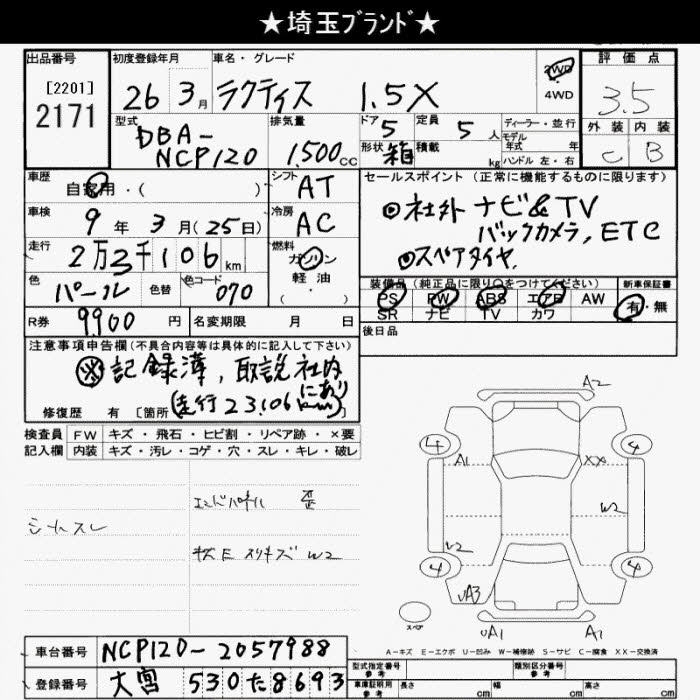 ★埼玉ﾌﾞﾗﾝﾄﾞ★
出品番号
[2201]
2171
初度登録年月
26年3月
車名・グレード
ラクティス 1.5X
2WD
4WD
評価点
3.5
外装 内装
C B
型式
DBA-
NCP120
排気量
1,500cc
ドア 5
定員 5人
形状 箱
積載 kg
ディーラー・並行
モデル年式 年
ハンドル 左・右
車歴
自家用・( )
シフト AT
車検
9年3月(25日)
冷房 AC
走行
2万3千106km
燃料
ガソリン
軽油
・
色
パール
色替
色コード 070
R券 9900円
名変期限 月 日
セールスポイント(正常に機能するものに限ります)
◎社外 ナビ&TV
バックカメラ, ETC
◎スペアタイヤ.
装備品(純正品に限り○をつけてください)
PS PW ABS エアB AW
SR ナビ TV カワ
新車保証書
有・無
後日品
注意事項申告欄(不具合内容等は具体的に記入して下さい)
※記録簿, 取説 社内にあり
(走行23,106km)
修復歴 有 [箇所
検査員記入欄
FW キズ・飛石・ヒビ割・リペア跡・×要
内装 キズ・汚レ・コゲ・穴・スレ・キレ・破レ
エンドパネル 歪
シートスレ
スリキズ W2
A2
4
4
A1
XX
W2
V2
4
4
UA3
スペア
UA1
A1
A-キズ E-エクボ U-凹み W-補修跡 S-サビ C-腐食 XX-交換済
車台番号 NCP120-2057988
登録番号 大宮 530 た 8693
型式指定番号
参考
類別区分番号
参考
車庫証明用
参考
長さ cm
幅 cm
高さ cm